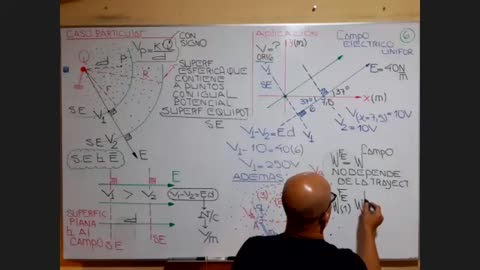 CASO PARTICULAR
CON
SIGNO
Vp = KQ
d
Q
d
P
R
r
SUPERF
ESFERICA QUE
CONTIENE
A PUNTOS
CON IGUAL
POTENCIAL
SUPERF EQUIPOT
S.E
S.E
V1
S.E V2
E
S.E ⊥ E
E
V1 > V2
V1-V2=Ed
N/C
V/m
SUPERFIC
PLANA
⊥ AL
CAMPO
d
SE
SE
APLICACIÓN
V=?
ORIG
y(m)
V1
CAMPO
ELÉCTRICO
UNIFOR
6
E=40N
m
37°
37°
7,5
6
x(m)
V1
V2
V(x=7,5)=10V
V2=10V
V1-V2=Ed
V1-10=40(6)
V1=250V
ADEMAS:
(3)
A
WE = W CAMPO
NO DEPENDE
DE LA TRAYECT
WE
(1)
W